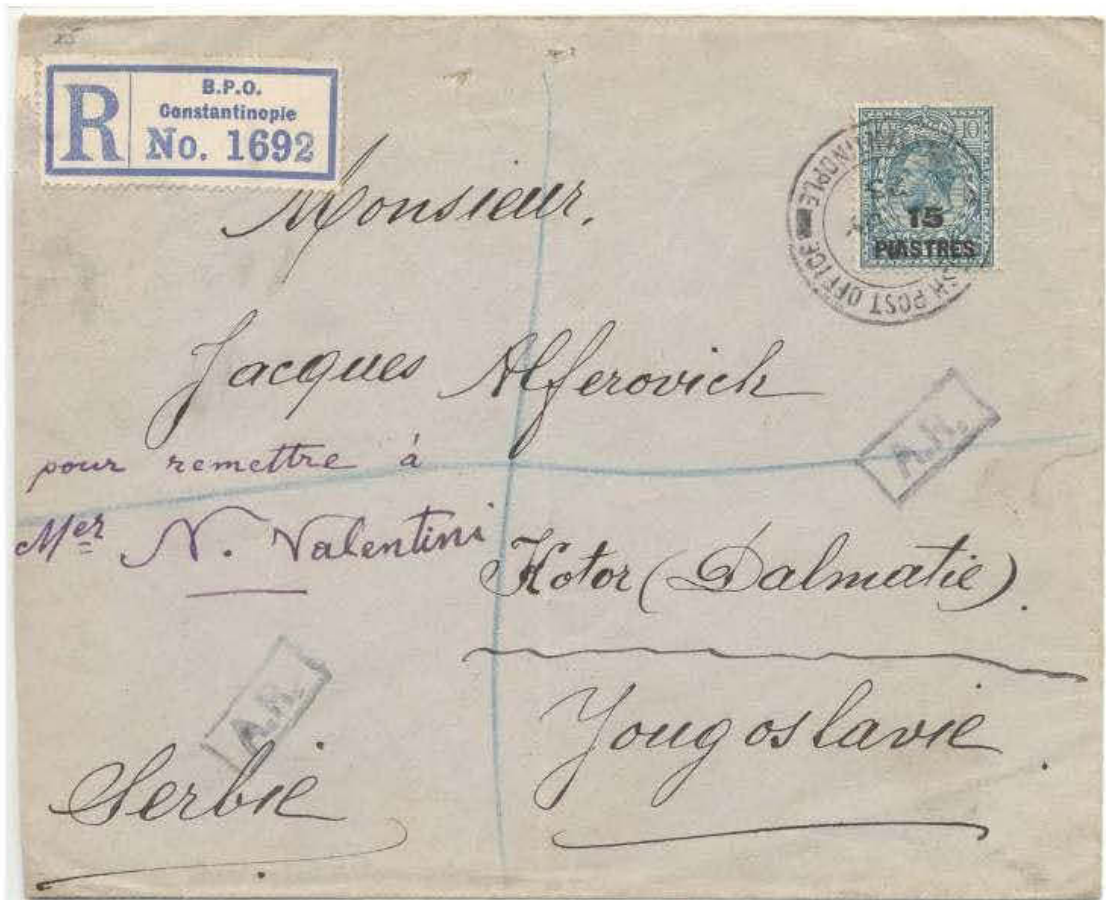 B.P.O.
Constantinople
R No. 1692
10
15
PIASTRES
SH POST OFFICE
NOPLE
Monsieur.
Jacques Alferovich
pour remettre à
Mer N. Valentini
A.R.
Kotor (Dalmatie).
A.R.
Yougoslavie.
Serbie